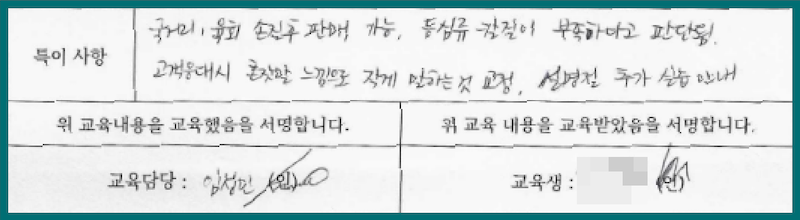 국거리, 육회 손질후 판매 가능, 등심류 칼질이 부족하다고 판단됨.
특이 사항
고객응대시 혼잣말 느낌으로 작게 말하는것 교정, 설명절 추가 실습 안내
위 교육내용을 교육했음을 서명합니다.
위 교육 내용을 교육받았음을 서명합니다.
교육담당 : 임성민 (인)
교육생 : (인)